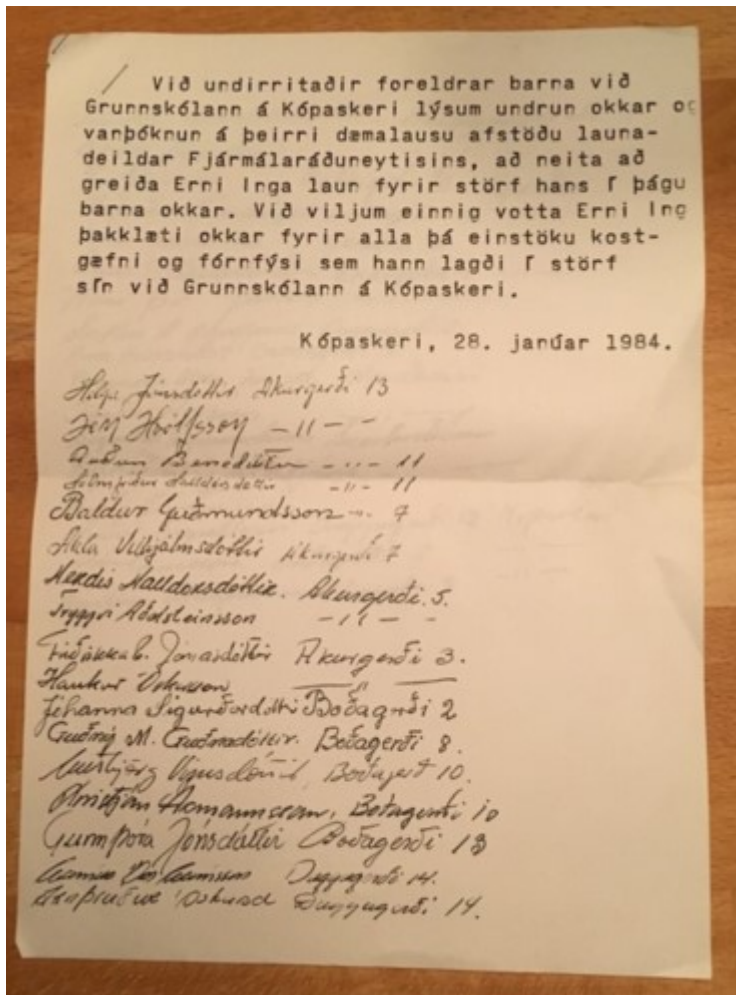 Við undirritaðir foreldrar barna við
Grunnskólann á Kópaskeri lýsum undrun okkar og
vanþóknun á þeirri dæmalausu afstöðu launa-
deildar Fjármálaráðuneytisins, að neita að
greiða Erni Inga laun fyrir störf hans í þágu
barna okkar. Við viljum einnig votta Erni Ing
þakklæti okkar fyrir alla þá einstöku kost-
gæfni og fórnfýsi sem hann lagði í störf
sín við Grunnskólann á Kópaskeri.
Kópaskeri, 28. janúar 1984.
Helga Jónsdóttir Akurgerði 13
Jón -11- -
Auðun Benediktsson -11- 11
Hólmfríður Halldórsdóttir -11- 11
Baldur Guðmundsson -11- 7
Vilhjálmsdóttir Akurgerði 7
Herdís Halldórsdóttir. Akurgerði. 5.
Tryggvi Aðalsteinsson -11- -
Jónasdóttir Akurgerði 3.
Haukur Óskarsson -11-
Jóhanna Sigurðardóttir Boðagerði 2
Guðný M. Guðnadóttir. Boðagerði 8.
Boðagerði 10.
Kristján Ármannsson, Boðagerði 10
Gunnþóra Jónsdóttir Boðagerði 13
Duggugerði 14.
Duggugerði 14.